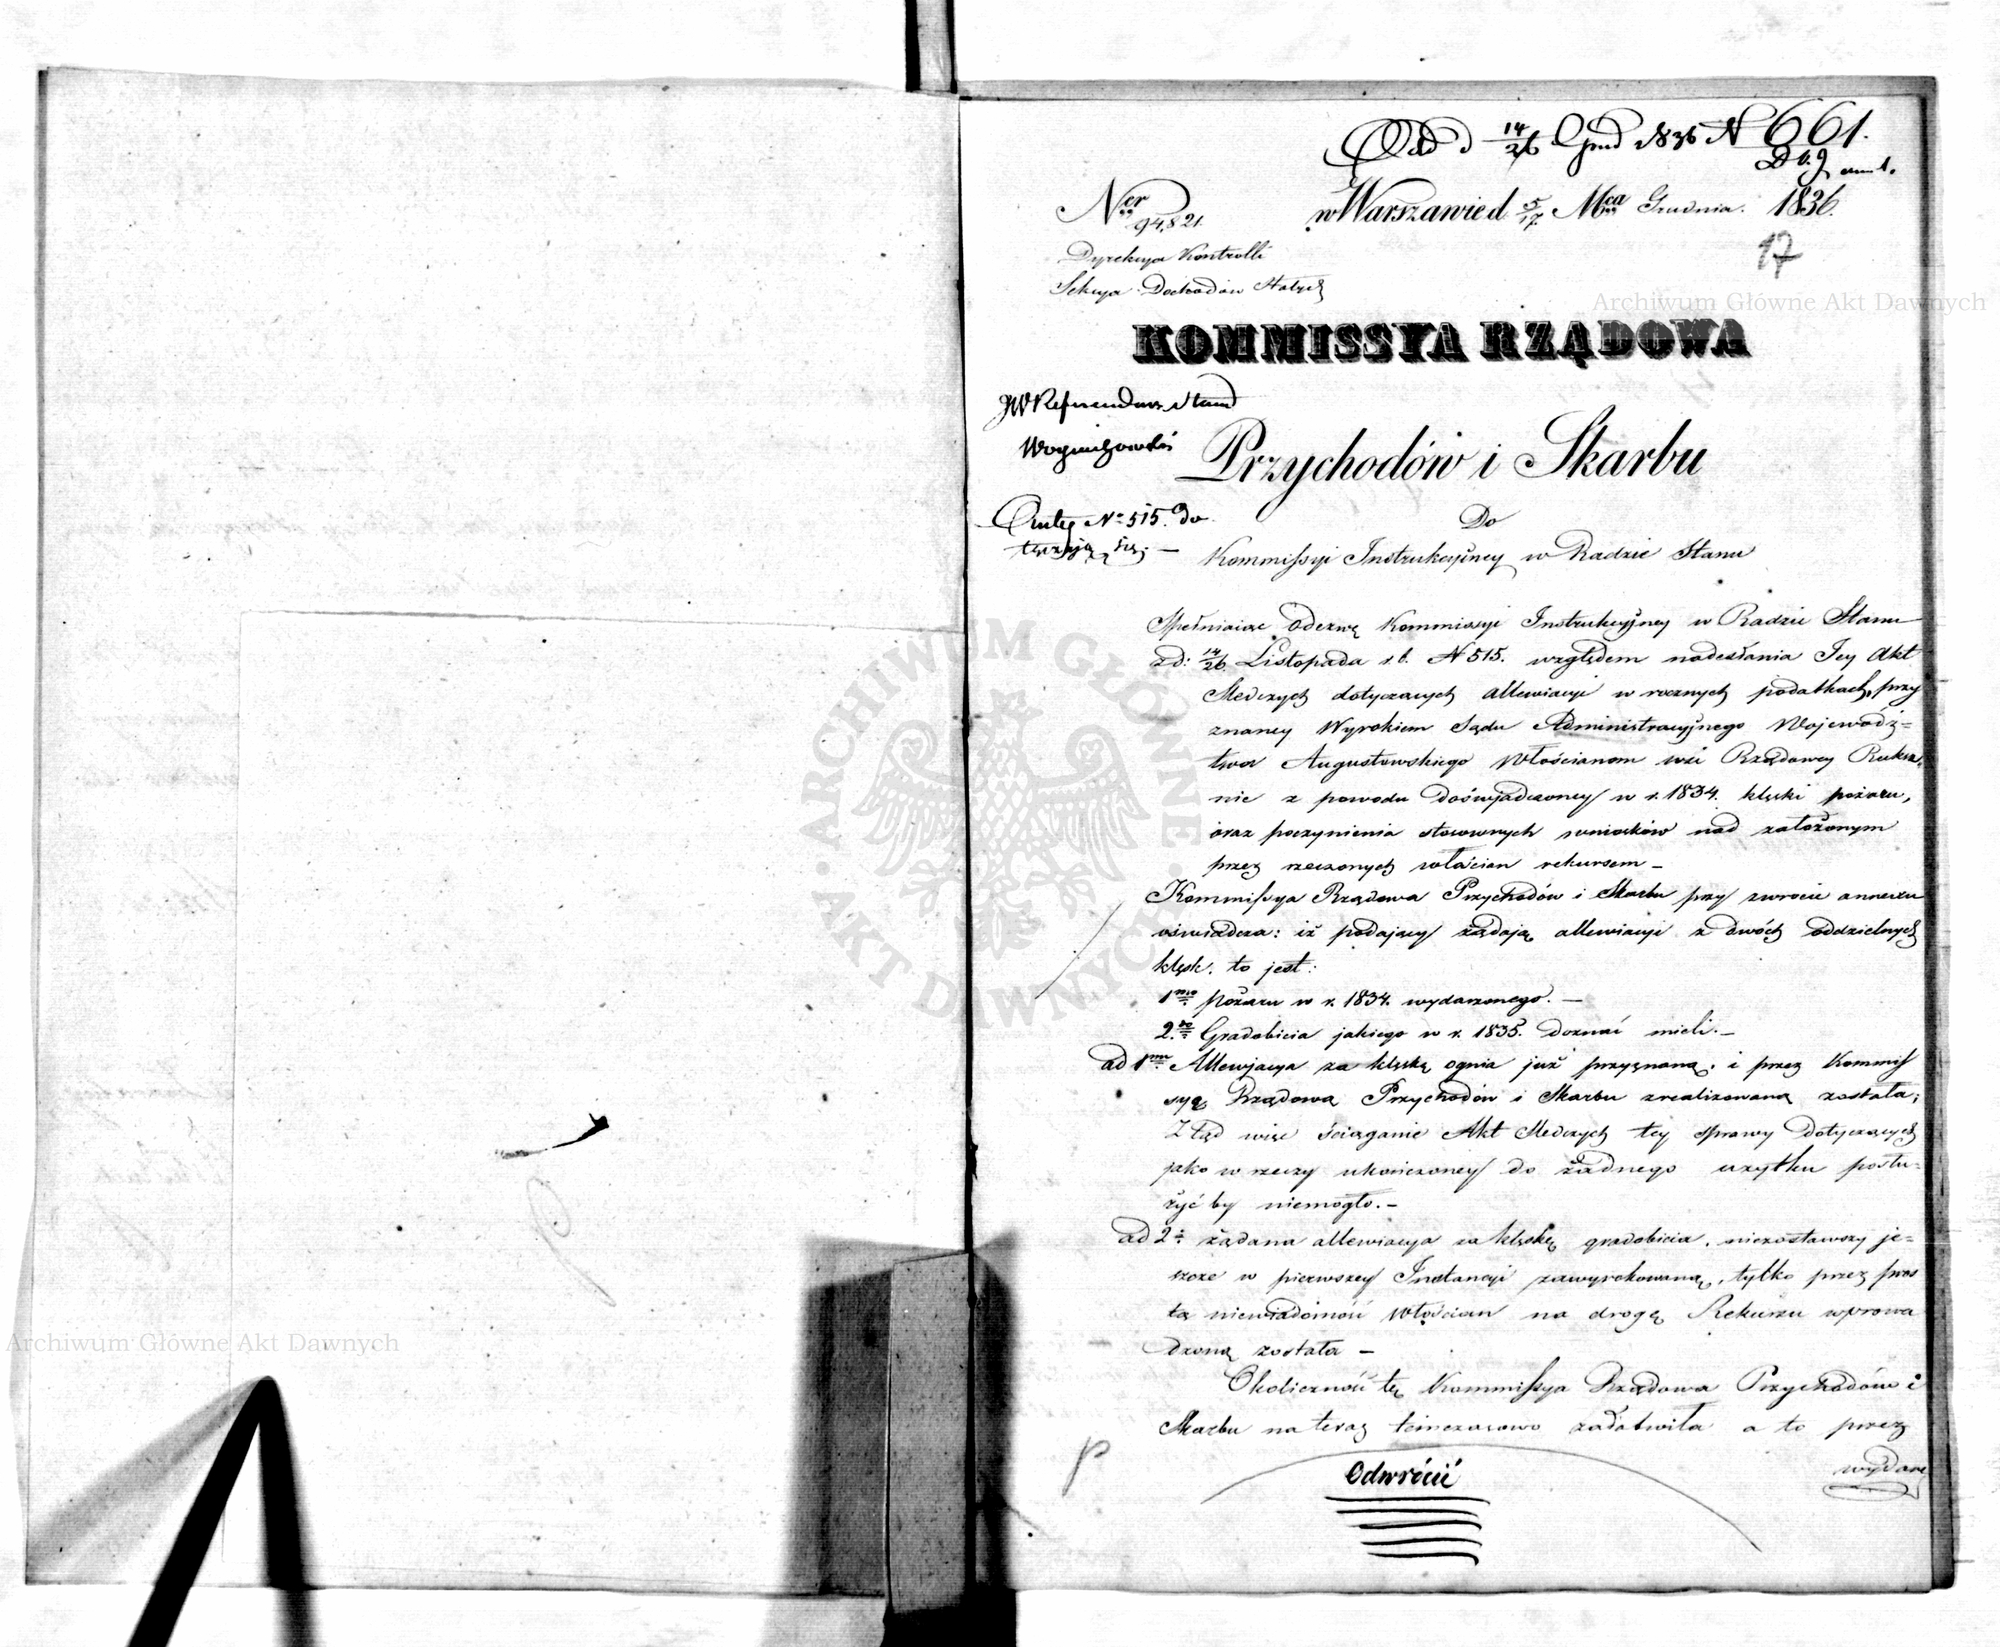 Odd d 14/26 Grud 1836 N 661.
Ner 94,821.
w Warszawie d 5/17 Mca Grudnia. 1836.
17
Dyrekcya Kontrolli
Sekcya Dochodów Stałych
Archiwum Główne Akt Dawnych
KOMMISSYA RZĄDOWA
JW Referendarz Stanu
Woyciechowski
Przychodów i Skarbu
Akta No 515. do
Do
Kommissyi Instrukcyjney w Radzie Stanu
Spełniaiąc odezwę Kommissyi Instrukcyjney w Radzie Stanu
z d: 14/26 Listopada r. b. N 515. względem nadesłania Jey Akt
Śledczych dotyczących allewiacyi w rocznych podatkach, przy
znaney Wyrokiem Sądu Administracyjnego Wojewódz=
twa Augustowskiego Włościanom wsi Rządowey
nie z powodu doświadczoney w r. 1834. klęski pożaru,
oraz poczynienia stosownych wniosków nad założonym
przez rzeczonych włościan rekursem –
Kommissya Rządowa Przychodów i Skarbu przy zwrocie annexu
oświadcza: iż podający żądają allewiacyi z dwóch oddzielnych
klęsk. to jest:
1mo Pożaru w r. 1834. wydarzonego. –
2do Gradobicia jakiego w r. 1835. doznać mieli. –
ad 1m Allewjacya za klęskę ognia już przyznaną. i przez Kommis
syą Rządową Przychodów i Skarbu zrealizowaną została;
Ztąd więc ściąganie Akt Śledczych tey sprawy dotyczących
jako w rzeczy ukończoney do żadnego użytku posłu=
żyć by niemogło. –
ad 2o żądana allewiacya za klęskę gradobicia, niezostawszy je=
szcze w pierwszey Instancyi zawyrokowaną, tylko przez pros
tą niewiadomość Włościan na drogę Rekursu wprowa
dzoną została –
Okoliczność tę Kommissya Rządowa Przychodów i
Skarbu na teraz tymczasowo załatwiła a to przez
wydane
Odwrócić
ARCHIWUM GŁÓWNE · AKT DAWNYCH ·
Archiwum Główne Akt Dawnych